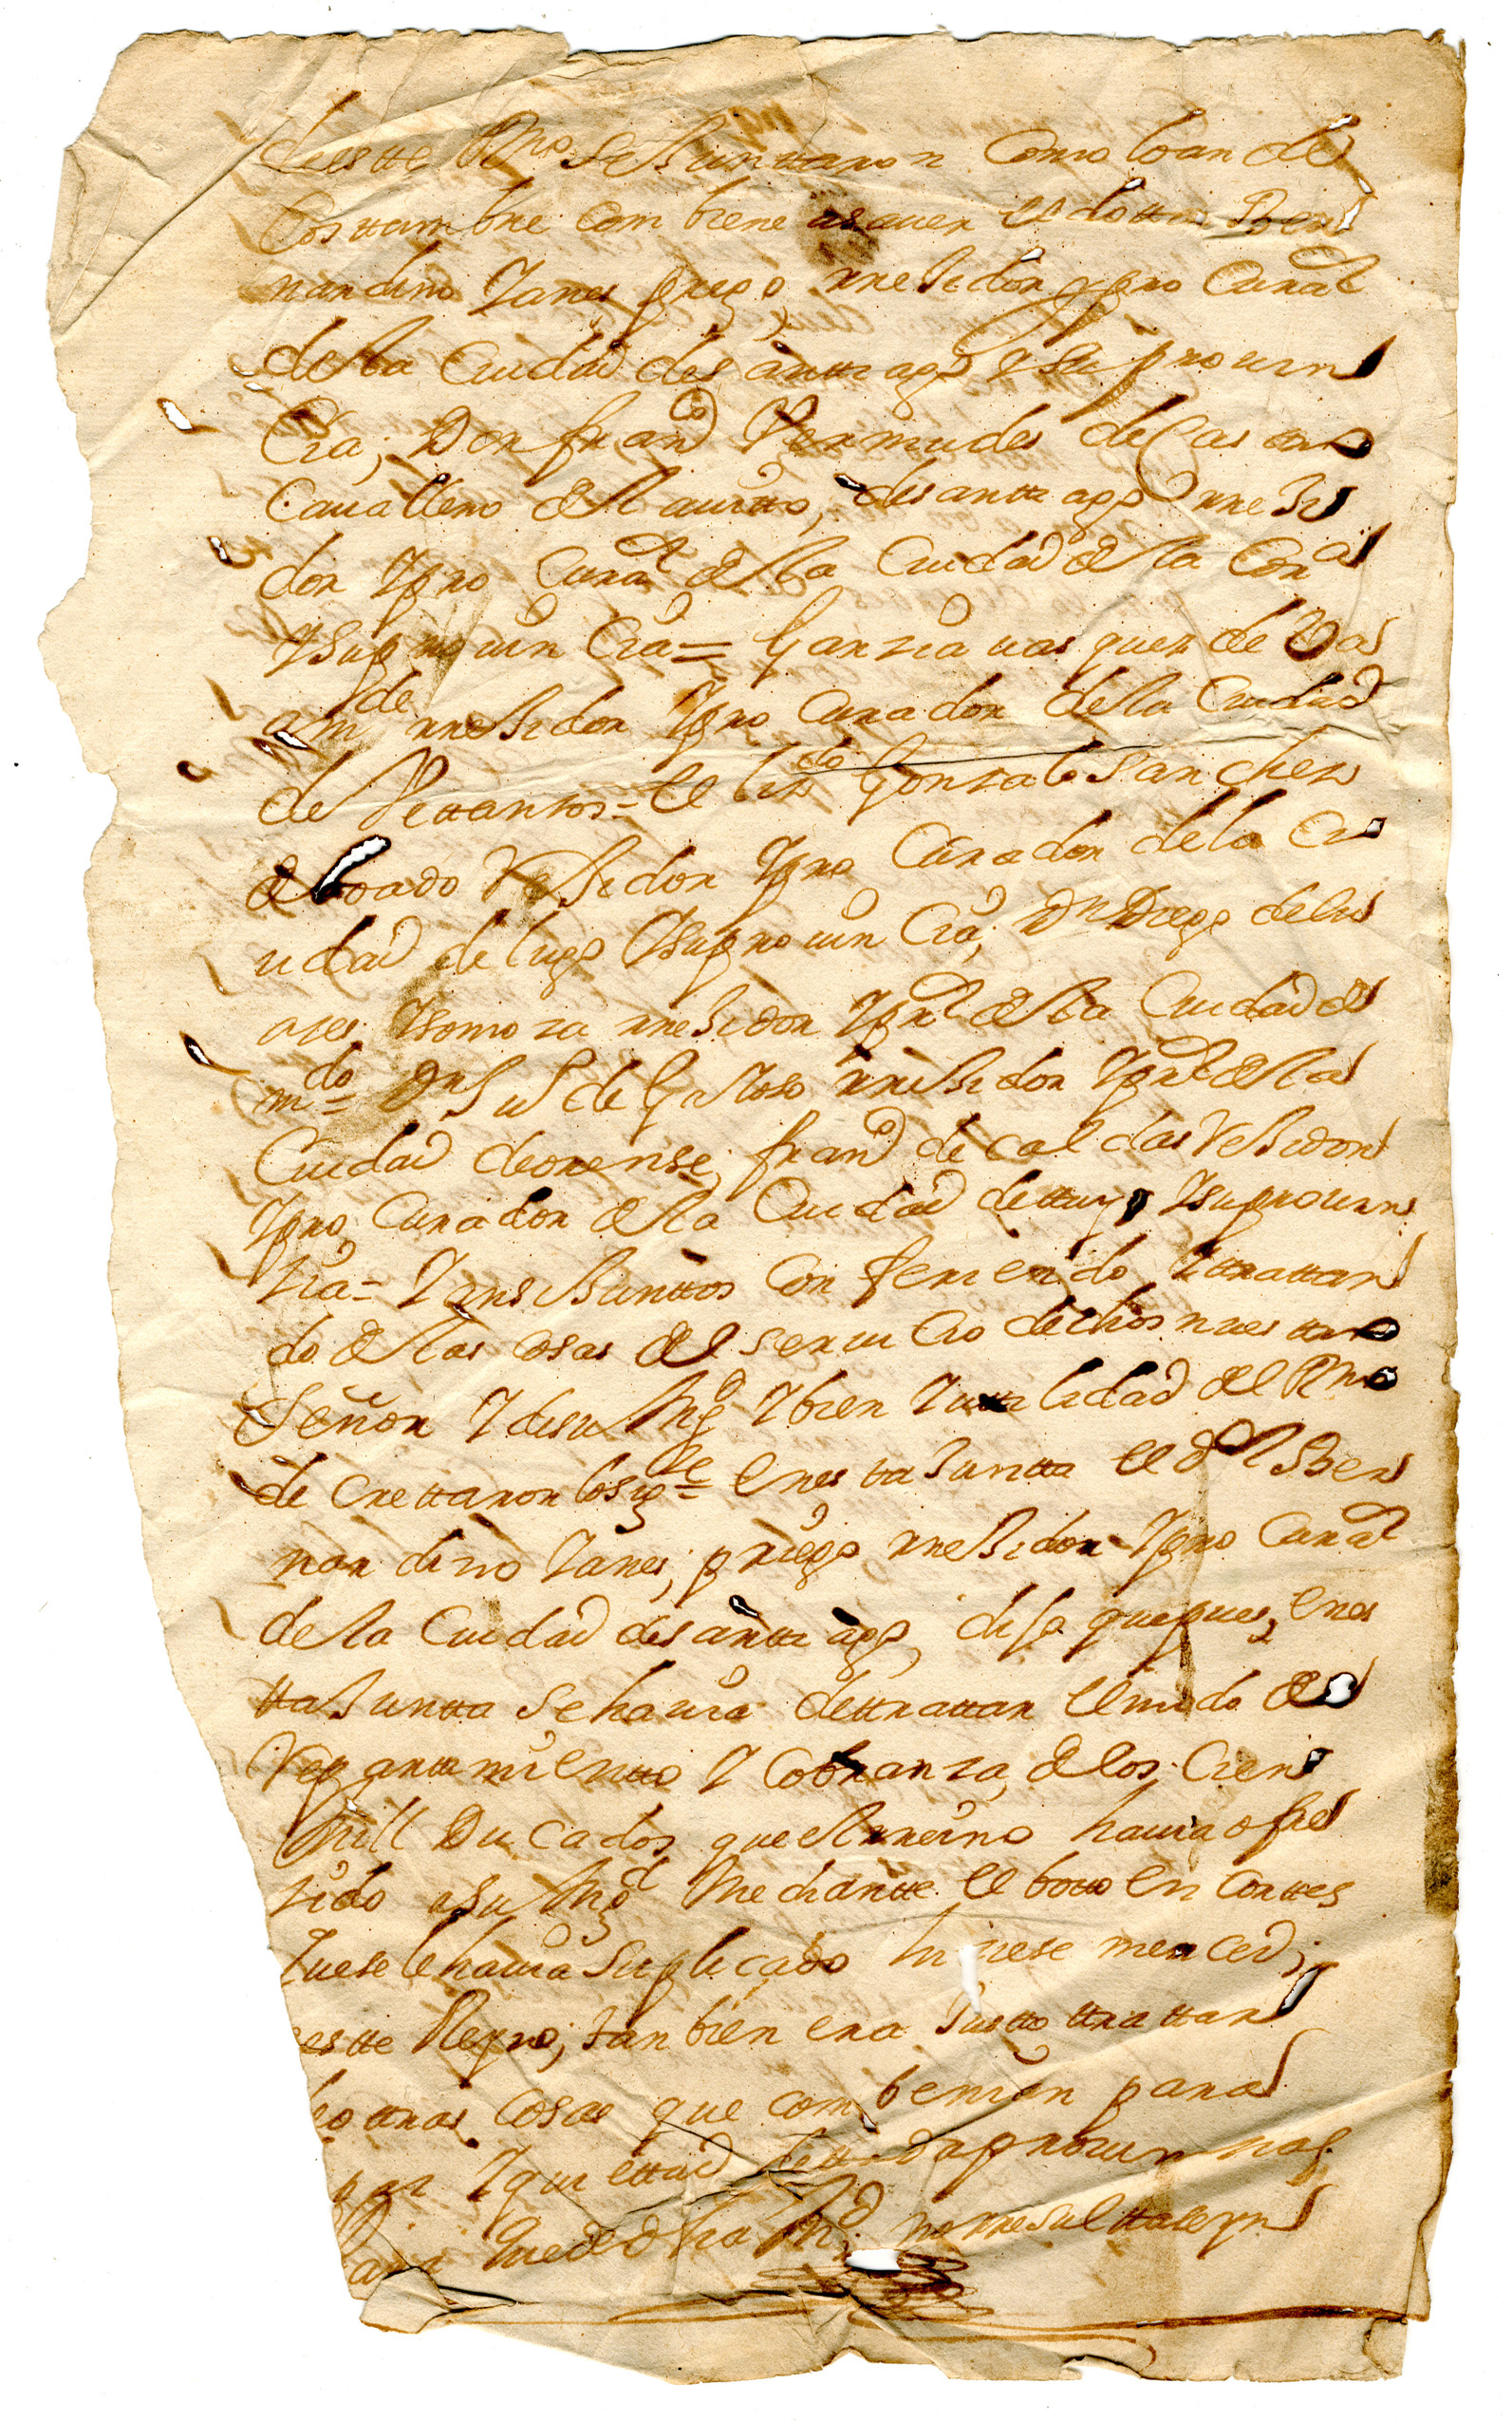 deeste Rno se Juntaron Como loan de
Costtumbre Combiene asauer el dottor Ber
nardino Yanes priego rrejidor y pro Curaor
de la Ciudad de santtiago y su prouin
Cia; Don franco Vermudes de Castro
Cauallero del auitto, de santtiago rreji
dor Y pro Curaor de la Ciudad de la Coruª
Y su prouin Cia = Garzia uas quez de Vaa
amde rrejidor Y pro Curador de la Ciudad
de Vettanzos = el lizdo Gonzalo Sanchez
de boado Rejidor Y pro Curador de la Ciu
udad de lugo Y su prouin Cia; Dn Diego de lus
ores Y somoza rrejidor Y pror de la Ciudad de
mdo = Dn Luis de Gaioso rrejidor Y pror de la
Ciudad de orense, franco de caldas Rejidor
Y pro Curador de la Ciudad de ttuy Y su prouin
zia = Y ansi Junttos Confiriendo Y ttrattan
do de las cosas del seruicio de dios nuesttro
Señor Y de su Mgd Y bien Y uttilidad del Rno
de crettaron lo sigte = En estta Juntta el dor Ber
nardino Yanes, priego rrejidor Y pro Curaor
de la Ciudad de santtiago, dijo que pues, en es
tta Juntta se hauia de ttrattar el modo del
Repartimientto Y Cobranza de los Cien
mill Ducados que el rreino hauia ofre
zido a su Mgd Mediantte el botto en Corttes
Que se le hauia suplicado hiziese merced;
esste Reyno; tanbien era Justto ttrattar
ottras Cosas que combenian para
paz Y quiettud de ttoda prouinzias
para que de dha no rresulttase yn